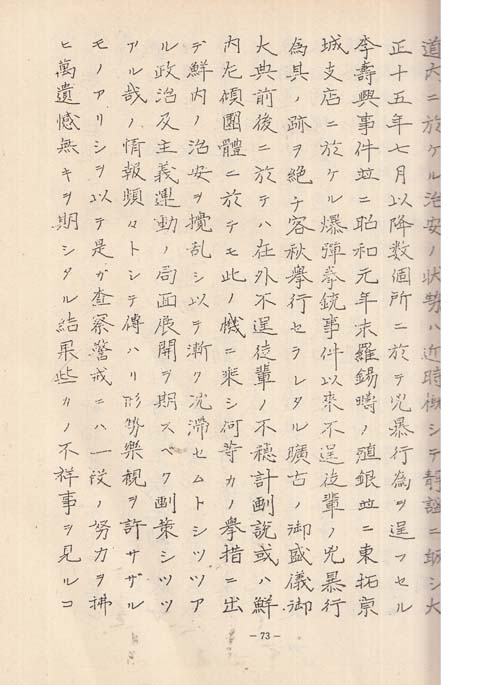 道内ニ於ケル治安ノ状勢ハ近時概シテ静謐ニ帰シ大
正十五年七月以降数個所ニ於テ兇暴行為ヲ逞フセル
李壽興事件並ニ昭和元年末羅錫疇ノ殖銀並ニ東拓京
城支店ニ於ケル爆彈拳銃事件以來不逞徒輩ノ兇暴行
為其ノ跡ヲ絶チ客秋擧行セラレタル曠古ノ御盛儀御
大典前後ニ於テハ在外不逞徒輩ノ不穏計劃説或ハ鮮
内左傾團體ニ於テモ此ノ機ニ乗シ何等カノ擧措ニ出
デ鮮内ノ治安ヲ攪乱シ以テ漸ク沈滞セムトシツツア
ル政治及主義運動ノ局面展開ヲ期スベク劃策シツツ
アル哉ノ情報頻々トシテ傳ハリ形勢樂観ヲ許サザル
モノアリシヲ以テ是ガ査察警戒ニハ一段ノ努力ヲ拂
ヒ萬遺憾無キヲ期シタル結果些カノ不祥事ヲ見ルコ
－73－